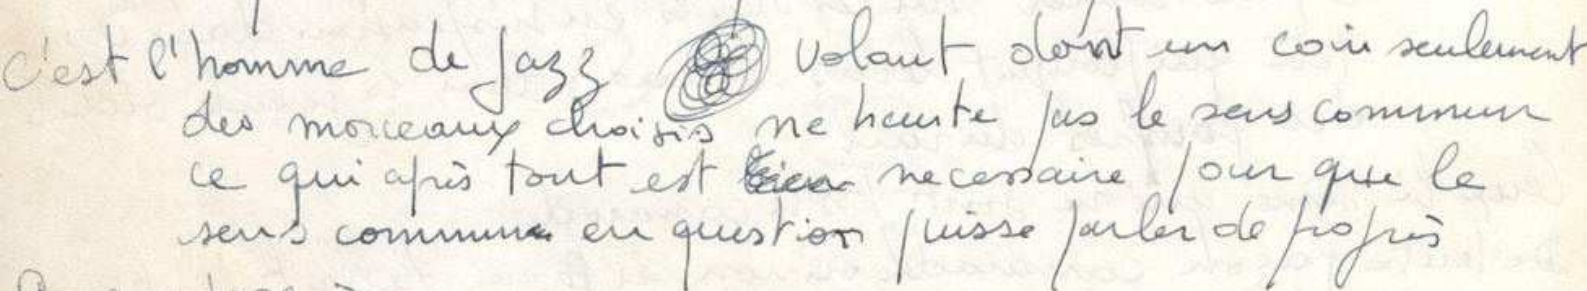 c'est l'homme de Jazz volant dont un coin seulement
des morceaux choisis ne heurte pas le sens commun
ce qui après tout est necessaire pour que le
sens commun en question puisse parler de progrès